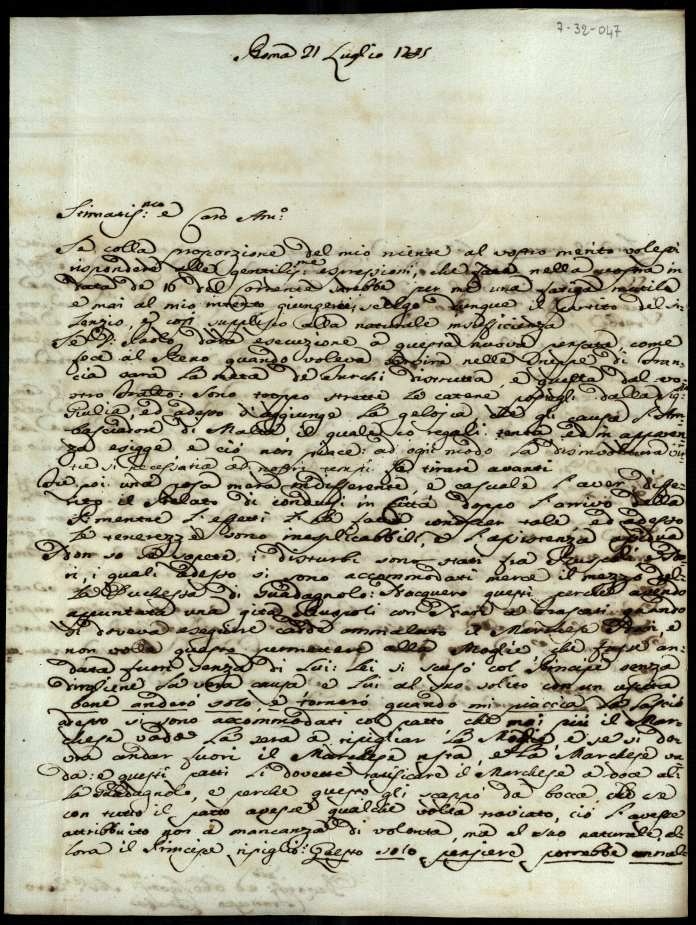 7-32-047
Roma 21 Luglio 1785
Stimatis.mo e Caro Am.o
Se colla proporzione del mio niente al vostro merito volessi
rispondere alle gentilis.me espressioni, che fate nella vostra in
data de 16 del corrente sarebbe per me una fatiga inutile
e mai al mio intento giungerei, scelgo dunque il partito del si-
lenzio, e così supplisco alla naturale insufficienza
Se D. Paolo darà esecuzione a questa nuova pensata, come
fece al Reno quando voleva servire nelle truppe di Fran-
cia sarà la setta de Turchi distrutta, e quella dal vo-
stro : Sono troppo strette le catene dalla Sig.
Giulia, ed adesso s'aggiunge la gelosia che gli causa l'Am-
basciadore di Malta il quale co regali tenta ed in apparen-
za esige e ciò non piace: ad ogni modo la disinvoltura
si necessaria ad nostri tempi fa tirare avanti
poi una cosa mera indifferente, e casuale l'aver diffe-
rito il Prelato di condursi in Città doppo l'arrivo della
Pimentel l'effetti la fatta conoscer tale, ed adesso
le tenerezze sono inesplicabbili, e l'assistenza
Non so se sapete, i disturbi sono stati fra Ruspoli e
ri, quali adesso si sono accommodati mercè il mezzo del-
la Duchessa di Guadagnolo: Nacquero questi perché avendo
appuntata una gita Ruspoli con a Frascati quando
si doveva eseguire cadde ammalato il Marchese , e
non volle questo permettere alla Moglie che fosse an-
data fuori senza di Lui: Lei si scusò col Principe senza
dirgliene la vera causa e Lui al suo solito con un
bene anderò solo e tornerò quando mi piaccia La lasciò
adesso si sono accommodati col patto che mai più il Mar-
chese vada La sera a ripigliar la Moglie e se si do-
vrà andar fuori il Marchese resta, e La Marchese va-
da: e questi patti li dovette ratificare il Marchese a voce al-
la Guadagnolo, e perché questo gli scappò da bocca, che se
con tutto il patto avesse qualche volta , ciò l'avesse
attribbuito non a mancanza di volontà, ma al suo naturale, al-
lora il Principe ripigliò: Questo solo pensiere potrebbe